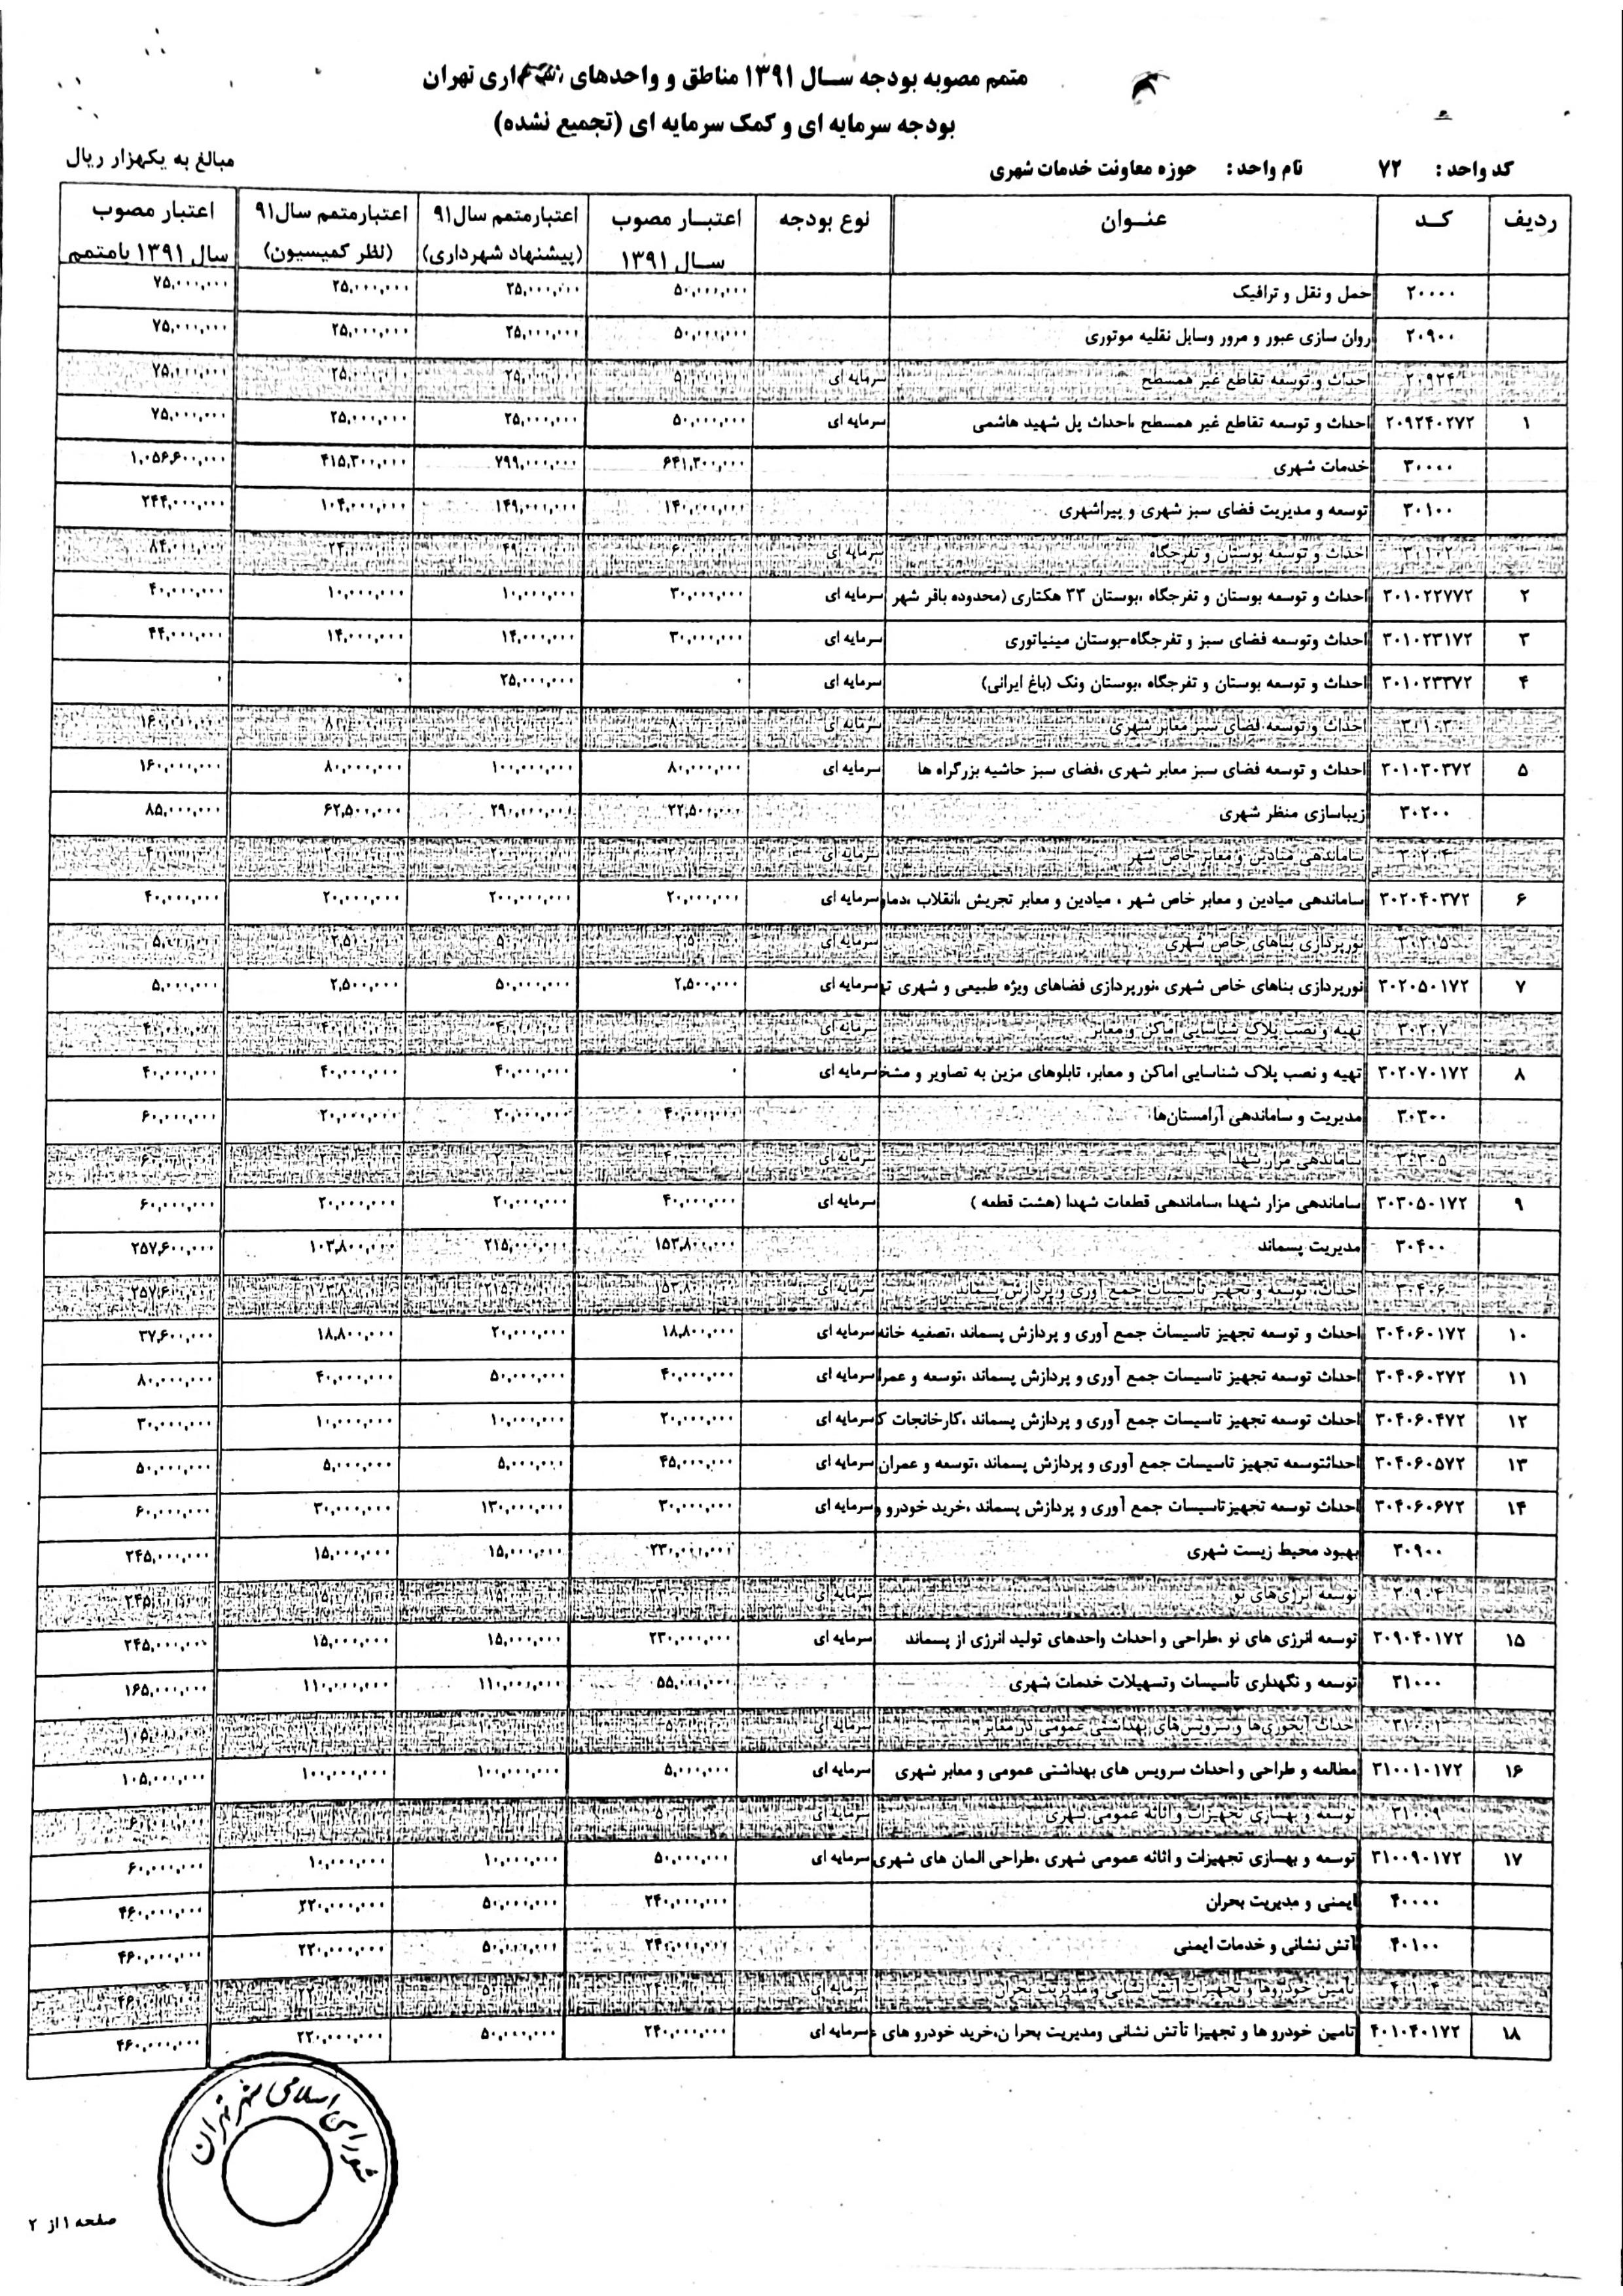 متمم مصوبه بودجه ســال ۱۳۹۱ مناطق و واحدهای شهرداری تهران
بودجه سرمایه ای و کمک سرمایه ای (تجمیع نشده)
کد واحد : ۷۲ نام واحد : حوزه معاونت خدمات شهری مبالغ به یکهزار ریال
ردیف کــد عنــوان نوع بودجه اعتبــار مصوب ســال ۱۳۹۱ اعتبارمتمم سال۹۱ (پیشنهاد شهرداری) اعتبارمتمم سال۹۱ (نظر کمیسیون) اعتبار مصوب سال ۱۳۹۱ بامتمم
۲۰۰۰۰ حمل و نقل و ترافیک ۵۰,۰۰۰,۰۰۰ ۲۵,۰۰۰,۰۰۰ ۲۵,۰۰۰,۰۰۰ ۷۵,۰۰۰,۰۰۰
۲۰۹۰۰ روان سازی عبور و مرور وسایل نقلیه موتوری ۵۰,۰۰۰,۰۰۰ ۲۵,۰۰۰,۰۰۰ ۲۵,۰۰۰,۰۰۰ ۷۵,۰۰۰,۰۰۰
۲۰۹۲۴ احداث و توسعه تقاطع غیر همسطح سرمایه ای ۵۰,۰۰۰,۰۰۰ ۲۵,۰۰۰,۰۰۰ ۲۵,۰۰۰,۰۰۰ ۷۵,۰۰۰,۰۰۰
۱ ۲۰۹۲۴۰۲۷۲ احداث و توسعه تقاطع غیر همسطح ،احداث پل شهید هاشمی سرمایه ای ۵۰,۰۰۰,۰۰۰ ۲۵,۰۰۰,۰۰۰ ۲۵,۰۰۰,۰۰۰ ۷۵,۰۰۰,۰۰۰
۳۰۰۰۰ خدمات شهری ۶۴۱,۳۰۰,۰۰۰ ۷۹۹,۰۰۰,۰۰۰ ۴۱۵,۳۰۰,۰۰۰ ۱,۰۵۶,۶۰۰,۰۰۰
۳۰۱۰۰ توسعه و مدیریت فضای سبز شهری و پیراشهری ۱۴۰,۰۰۰,۰۰۰ ۱۴۹,۰۰۰,۰۰۰ ۱۰۴,۰۰۰,۰۰۰ ۲۴۴,۰۰۰,۰۰۰
۳۰۱۰۲ احداث و توسعه بوستان و تفرجگاه سرمایه ای ۶۰,۰۰۰,۰۰۰ ۴۹,۰۰۰,۰۰۰ ۲۴,۰۰۰,۰۰۰ ۸۴,۰۰۰,۰۰۰
۲ ۳۰۱۰۲۲۷۷۲ احداث و توسعه بوستان و تفرجگاه ،بوستان ۳۳ هکتاری (محدوده باقر شهر سرمایه ای ۳۰,۰۰۰,۰۰۰ ۱۰,۰۰۰,۰۰۰ ۱۰,۰۰۰,۰۰۰ ۴۰,۰۰۰,۰۰۰
۳ ۳۰۱۰۲۳۱۷۲ احداث وتوسعه فضای سبز و تفرجگاه-بوستان مینیاتوری سرمایه ای ۳۰,۰۰۰,۰۰۰ ۱۴,۰۰۰,۰۰۰ ۱۴,۰۰۰,۰۰۰ ۴۴,۰۰۰,۰۰۰
۴ ۳۰۱۰۲۳۳۷۲ احداث و توسعه بوستان و تفرجگاه ،بوستان ونک (باغ ایرانی) سرمایه ای ۰ ۲۵,۰۰۰,۰۰۰ ۰ ۰
۳۰۱۰۳ احداث و توسعه فضای سبز معابر شهری سرمایه ای
۵ ۳۰۱۰۳۰۳۷۲ احداث و توسعه فضای سبز معابر شهری ،فضای سبز حاشیه بزرگراه ها سرمایه ای ۸۰,۰۰۰,۰۰۰ ۱۰۰,۰۰۰,۰۰۰ ۸۰,۰۰۰,۰۰۰ ۱۶۰,۰۰۰,۰۰۰
۳۰۲۰۰ زیباسازی منظر شهری ۲۲,۵۰۰,۰۰۰ ۲۹۰,۰۰۰,۰۰۰ ۶۲,۵۰۰,۰۰۰ ۸۵,۰۰۰,۰۰۰
۳۰۲۰۴ ساماندهی میادین و معابر خاص شهر سرمایه ای
۶ ۳۰۲۰۴۰۳۷۲ ساماندهی میادین و معابر خاص شهر ، میادین و معابر تجریش ،انقلاب ،دماو سرمایه ای ۲۰,۰۰۰,۰۰۰ ۲۰۰,۰۰۰,۰۰۰ ۲۰,۰۰۰,۰۰۰ ۴۰,۰۰۰,۰۰۰
۳۰۲۰۵ نورپردازی بناهای خاص شهری سرمایه ای
۷ ۳۰۲۰۵۰۱۷۲ نورپردازی بناهای خاص شهری ،نورپردازی فضاهای ویژه طبیعی و شهری ته سرمایه ای ۲,۵۰۰,۰۰۰ ۵۰,۰۰۰,۰۰۰ ۲,۵۰۰,۰۰۰ ۵,۰۰۰,۰۰۰
۳۰۲۰۷ تهیه و نصب پلاک شناسایی اماکن و معابر سرمایه ای
۸ ۳۰۲۰۷۰۱۷۲ تهیه و نصب پلاک شناسایی اماکن و معابر، تابلوهای مزین به تصاویر و مشخ سرمایه ای ۰ ۴۰,۰۰۰,۰۰۰ ۴۰,۰۰۰,۰۰۰ ۴۰,۰۰۰,۰۰۰
۳۰۳۰۰ مدیریت و ساماندهی آرامستان‌ها ۴۰,۰۰۰,۰۰۰ ۲۰,۰۰۰,۰۰۰ ۲۰,۰۰۰,۰۰۰ ۶۰,۰۰۰,۰۰۰
۳۰۳۰۵ ساماندهی مزار شهدا سرمایه ای
۹ ۳۰۳۰۵۰۱۷۲ ساماندهی مزار شهدا ،ساماندهی قطعات شهدا (هشت قطعه ) سرمایه ای ۴۰,۰۰۰,۰۰۰ ۲۰,۰۰۰,۰۰۰ ۲۰,۰۰۰,۰۰۰ ۶۰,۰۰۰,۰۰۰
۳۰۴۰۰ مدیریت پسماند ۱۵۳,۸۰۰,۰۰۰ ۲۱۵,۰۰۰,۰۰۰ ۱۰۳,۸۰۰,۰۰۰ ۲۵۷,۶۰۰,۰۰۰
۳۰۴۰۶ احداث، توسعه و تجهیز تأسیسات جمع آوری و پردازش پسماند سرمایه ای
۱۰ ۳۰۴۰۶۰۱۷۲ احداث و توسعه تجهیز تاسیسات جمع آوری و پردازش پسماند ،تصفیه خانه سرمایه ای ۱۸,۸۰۰,۰۰۰ ۲۰,۰۰۰,۰۰۰ ۱۸,۸۰۰,۰۰۰ ۳۷,۶۰۰,۰۰۰
۱۱ ۳۰۴۰۶۰۲۷۲ احداث توسعه تجهیز تاسیسات جمع آوری و پردازش پسماند ،توسعه و عمرا سرمایه ای ۴۰,۰۰۰,۰۰۰ ۵۰,۰۰۰,۰۰۰ ۴۰,۰۰۰,۰۰۰ ۸۰,۰۰۰,۰۰۰
۱۲ ۳۰۴۰۶۰۴۷۲ احداث توسعه تجهیز تاسیسات جمع آوری و پردازش پسماند ،کارخانجات ک سرمایه ای ۲۰,۰۰۰,۰۰۰ ۱۰,۰۰۰,۰۰۰ ۱۰,۰۰۰,۰۰۰ ۳۰,۰۰۰,۰۰۰
۱۳ ۳۰۴۰۶۰۵۷۲ احداثتوسعه تجهیز تاسیسات جمع آوری و پردازش پسماند ،توسعه و عمران سرمایه ای ۴۵,۰۰۰,۰۰۰ ۵,۰۰۰,۰۰۰ ۵,۰۰۰,۰۰۰ ۵۰,۰۰۰,۰۰۰
۱۴ ۳۰۴۰۶۰۶۷۲ احداث توسعه تجهیزتاسیسات جمع آوری و پردازش پسماند ،خرید خودرو و سرمایه ای ۳۰,۰۰۰,۰۰۰ ۱۳۰,۰۰۰,۰۰۰ ۳۰,۰۰۰,۰۰۰ ۶۰,۰۰۰,۰۰۰
۳۰۹۰۰ بهبود محیط زیست شهری ۲۳۰,۰۰۰,۰۰۰ ۱۵,۰۰۰,۰۰۰ ۱۵,۰۰۰,۰۰۰ ۲۴۵,۰۰۰,۰۰۰
۳۰۹۰۴ توسعه انرژی‌های نو سرمایه ای
۱۵ ۳۰۹۰۴۰۱۷۲ توسعه انرژی های نو ،طراحی و احداث واحدهای تولید انرژی از پسماند سرمایه ای ۲۳۰,۰۰۰,۰۰۰ ۱۵,۰۰۰,۰۰۰ ۱۵,۰۰۰,۰۰۰ ۲۴۵,۰۰۰,۰۰۰
۳۱۰۰۰ توسعه و نگهداری تأسیسات وتسهیلات خدمات شهری ۵۵,۰۰۰,۰۰۰ ۱۱۰,۰۰۰,۰۰۰ ۱۱۰,۰۰۰,۰۰۰ ۱۶۵,۰۰۰,۰۰۰
۳۱۰۰۱ احداث آبخوری‌ها و سرویس‌های بهداشتی عمومی در معابر سرمایه ای
۱۶ ۳۱۰۰۱۰۱۷۲ مطالعه و طراحی و احداث سرویس های بهداشتی عمومی و معابر شهری سرمایه ای ۵,۰۰۰,۰۰۰ ۱۰۰,۰۰۰,۰۰۰ ۱۰۰,۰۰۰,۰۰۰ ۱۰۵,۰۰۰,۰۰۰
۳۱۰۰۹ توسعه و بهسازی تجهیزات و اثاثه عمومی شهری سرمایه ای
۱۷ ۳۱۰۰۹۰۱۷۲ توسعه و بهسازی تجهیزات و اثاثه عمومی شهری ،طراحی المان های شهری سرمایه ای ۵۰,۰۰۰,۰۰۰ ۱۰,۰۰۰,۰۰۰ ۱۰,۰۰۰,۰۰۰ ۶۰,۰۰۰,۰۰۰
۴۰۰۰۰ ایمنی و مدیریت بحران ۲۴۰,۰۰۰,۰۰۰ ۵۰,۰۰۰,۰۰۰ ۲۲۰,۰۰۰,۰۰۰ ۴۶۰,۰۰۰,۰۰۰
۴۰۱۰۰ آتش نشانی و خدمات ایمنی ۲۴۰,۰۰۰,۰۰۰ ۵۰,۰۰۰,۰۰۰ ۲۲۰,۰۰۰,۰۰۰ ۴۶۰,۰۰۰,۰۰۰
۴۰۱۰۴ تأمین خودروها و تجهیزات آتش نشانی و مدیریت بحران سرمایه ای
۱۸ ۴۰۱۰۴۰۱۷۲ تامین خودرو ها و تجهیزا تآتش نشانی ومدیریت بحرا ن،خرید خودرو های ع سرمایه ای ۲۴۰,۰۰۰,۰۰۰ ۵۰,۰۰۰,۰۰۰ ۲۲۰,۰۰۰,۰۰۰ ۴۶۰,۰۰۰,۰۰۰
شورای اسلامی شهر تهران
صفحه ۱ از ۲